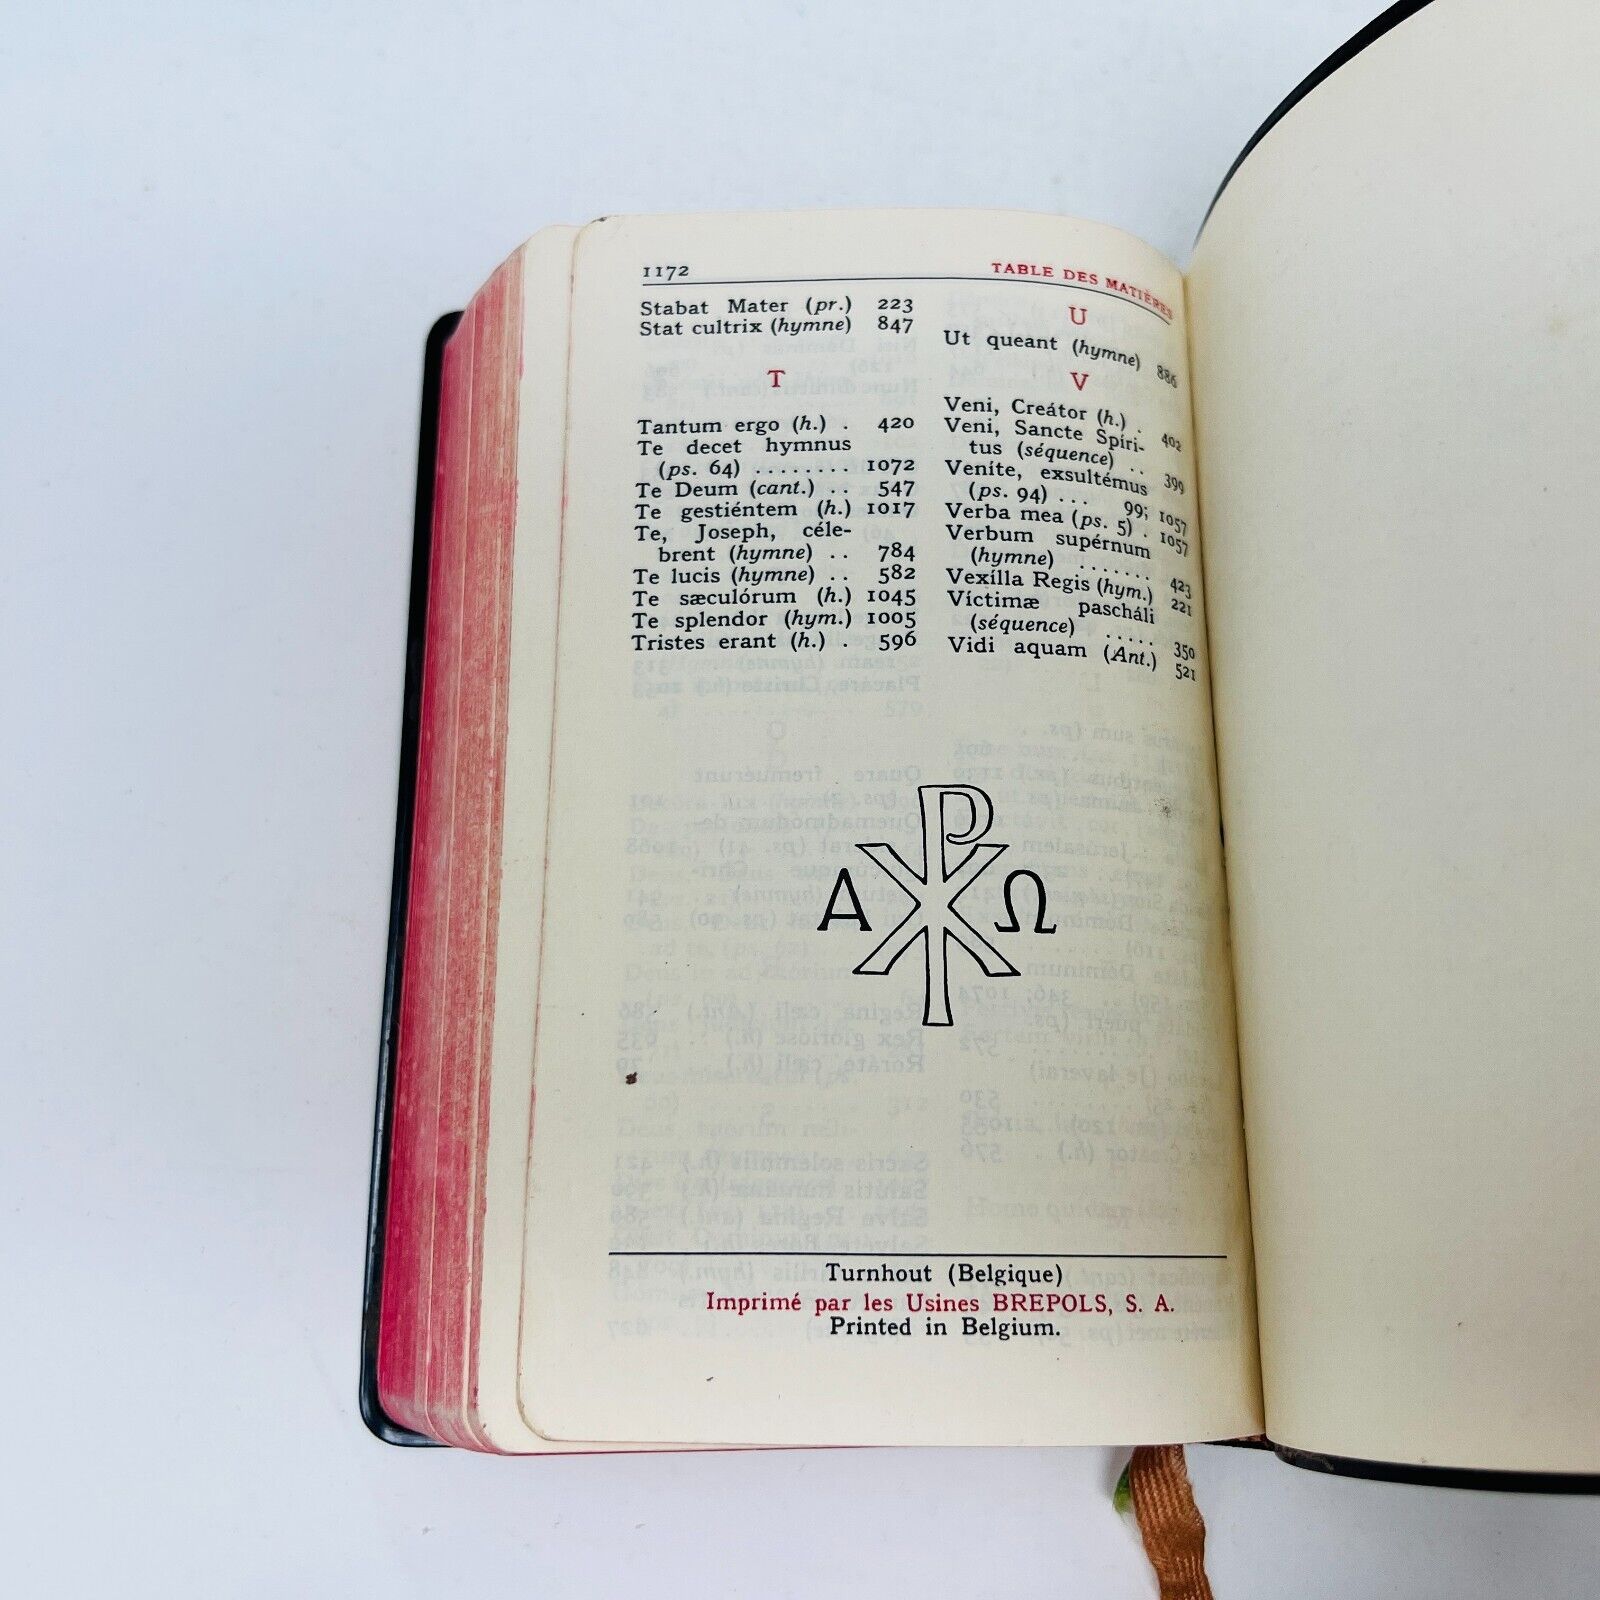 1172
TABLE DES MATIÈRES
Stabat Mater (pr.) 223
Stat cultrix (hymne) 847
T
Tantum ergo (h.) . 420
Te decet hymnus
(ps. 64) ........ 1072
Te Deum (cant.) .. 547
Te gestiéntem (h.) 1017
Te, Joseph, céle-
brent (hymne) .. 784
Te lucis (hymne) .. 582
Te sæculórum (h.) 1045
Te splendor (hym.) 1005
Tristes erant (h.) . 596
U
Ut queant (hymne) 886
V
Veni, Creátor (h.) . 402
Veni, Sancte Spíri-
tus (séquence) .. 399
Veníte, exsultémus
(ps. 94) ... 99; 1057
Verba mea (ps. 5) . 1057
Verbum supérnum
(hymne) ....... 423
Vexílla Regis (hym.) 221
Víctimæ pascháli
(séquence) ..... 350
Vidi aquam (Ant.) 521
Α Ω
Turnhout (Belgique)
Imprimé par les Usines BREPOLS, S. A.
Printed in Belgium.